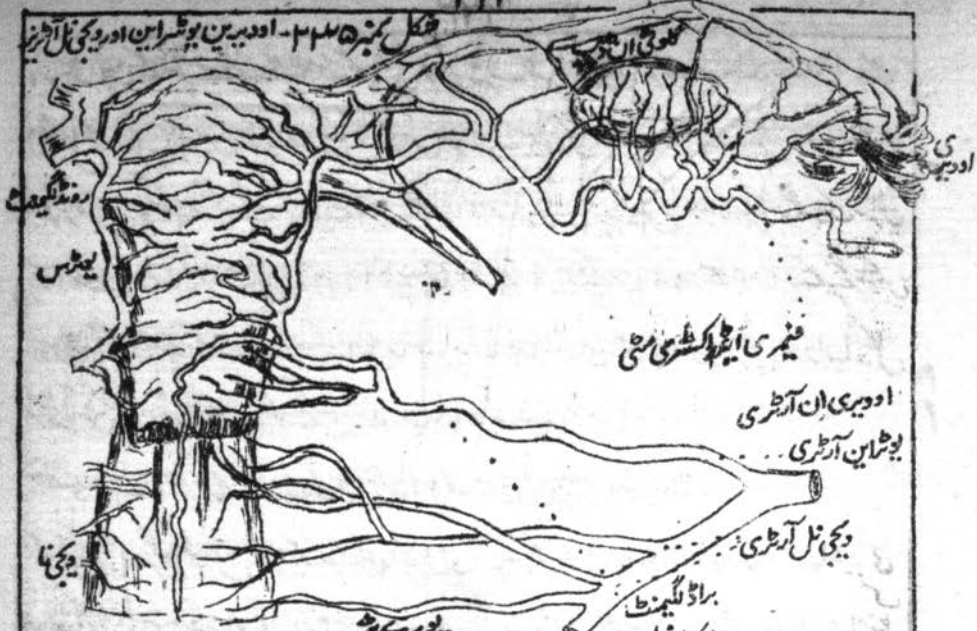 شکل نمبر ۲۲۵- اوویرین یوٹراین اور ویجی نل آرٹریز
اوویری
راونڈ لگیمنٹ
یوٹرس
فیمبری ایٹڈ اکسٹری مٹی
اوویری ان آرٹری
یوٹراین آرٹری
ویجی نل آرٹری
ویجی نا
براڈ لگیمنٹ